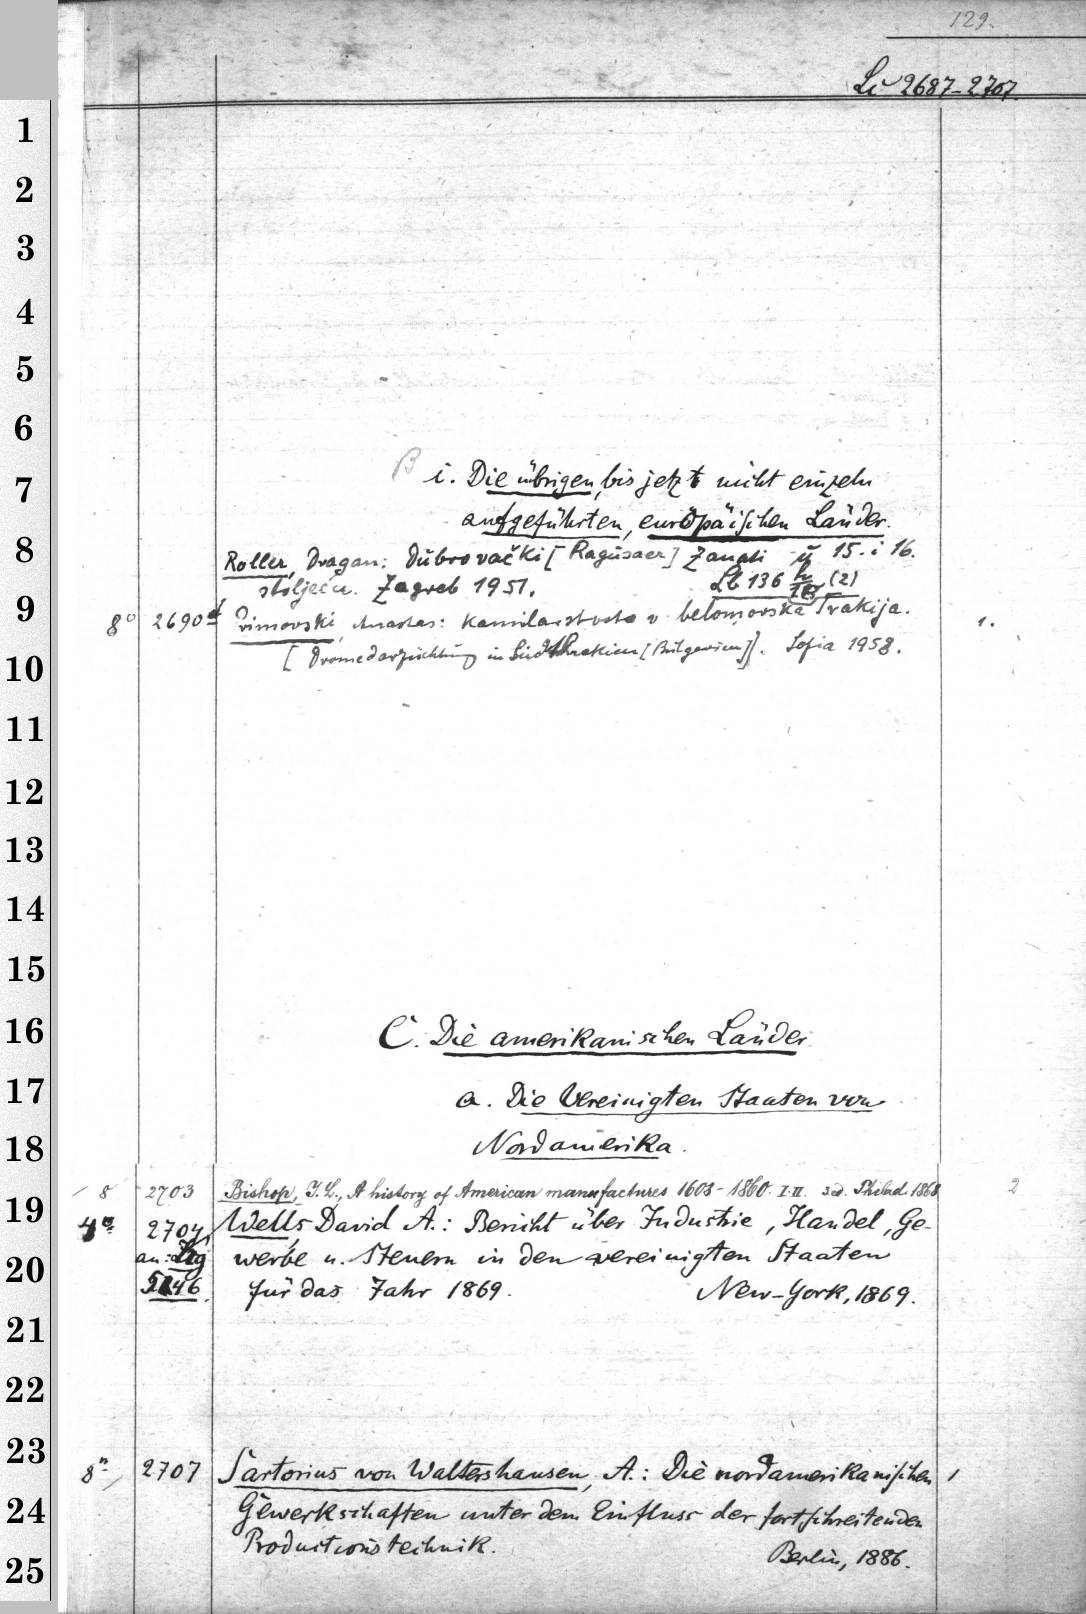 129.
Li 2687-2707.
B i. Die übrigen, bis jetzt nicht einzeln
aufgeführten, europäischen Länder.
Roller, Dragan: Dubrovački [Ragusaer] Zanati u 15. i 16.
stoljeću. Zagreb 1951. Lb 136 (2)
8° 2690 Primovski, Anastas: Kamilarstvoto v belomorska Trakija. 1.
[Dromedarzüchtung in Südthrakien [Bulgarien]]. Sofia 1958.
C. Die amerikanischen Länder
a. Die Vereinigten Staaten von
Nordamerika.
8 2703 Bishop, J. L., A history of American manufactures 1608-1860. I-II. 3 ed. Philad. 1868 2
4° 2704, Wells, David A.: Bericht über Industrie, Handel, Ge-
an: werbe u. Steuern in den vereinigten Staaten
für das Jahr 1869. New-York, 1869.
8° 2707 Sartorius von Waltershausen, A.: Die nordamerikanischen 1
Gewerkschaften unter dem Einfluss der fortschreitenden
Productionstechnik. Berlin, 1886.
1
2
3
4
5
6
7
8
9
10
11
12
13
14
15
16
17
18
19
20
21
22
23
24
25